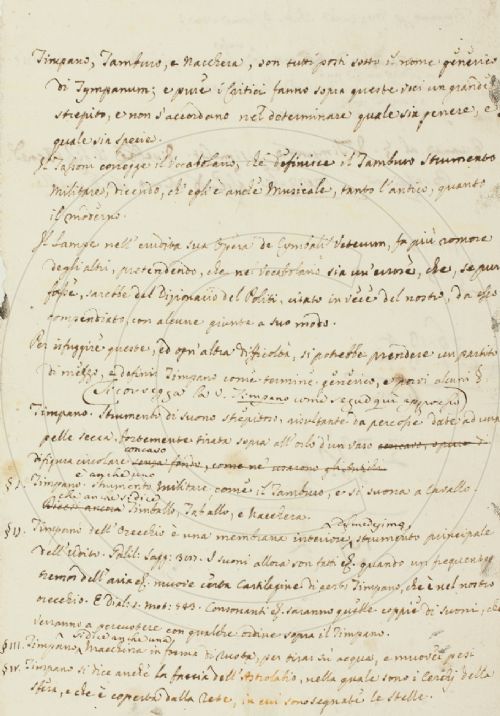 Timpano, Tamburo, e Nacchera, son tutti posti sotto il nome generico
di Tympanum; e pure i Critici fanno sopra queste voci un grande
strepito, e non s'accordano nel determinare quale sia genere, e
quale sia specie.
Il Tassoni corregge il Vocabolario, che definisce il Tamburo Strumento
Militare, dicendo, ch'egli è anche Musicale, tanto l'antico, quanto
il moderno.
Il Lampe nell'erudita sua Opera de Cymbalis Veterum, fa più romore
degli altri, pretendendo, che nel Vocabolario sia un'errore, che, se pur
fosse, sarebbe del Dizionario del Politi, citato in vece del nostro, da esso
compendiato, con alcune giunte a suo modo.
Per isfuggire queste, ed ogn'altra difficoltà, si potrebbe prendere un partito
di mezzo, e definir Timpano come termine generico, e porvi alcuni §.
(Si corregga la V. Timpano come segue qui appresso)
Timpano. Strumento di suono strepitoso, risultante da percosse date ad una
pelle secca, fortemente tirata sopra all'orlo d'un vaso concavo, o pure di
concavo
di figura circolare senza fondo, come ne
è anche uno
§ I. Timpano. Strumento Militare, come il Tamburo, e si suona a Cavallo.
che anche si dice
Dicesi ancora Timballo, Taballo, e Nacchera.
del medesimo,
§ II. Timpano dell'Orecchio è una membrana interiore, strumento principale
dell'udito. Galil. Sagg: I suoni allora son fatti &. quando un frequente
tremor dell'aria &. muove certa Cartilagine di certo Timpano, che è nel nostro
orecchio. E Dial. Mot: 543. Consonanti &. saranno quelle coppie di suoni, che
verranno a percuotere con qualche ordine sopra il Timpano.
si dice anche una
§ III. Timpano Macchina in forma di Ruota, per tirar su acqua, e muover pesi
§ IV. Timpano si dice anche la faccia dell'Astrolabio, nella quale sono i Cerchi della
sfera, e che è coperta dalla Rete, in cui sono segnate le stelle.